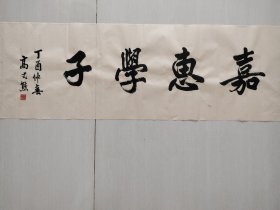 嘉惠學子
丁酉仲春
高士熊